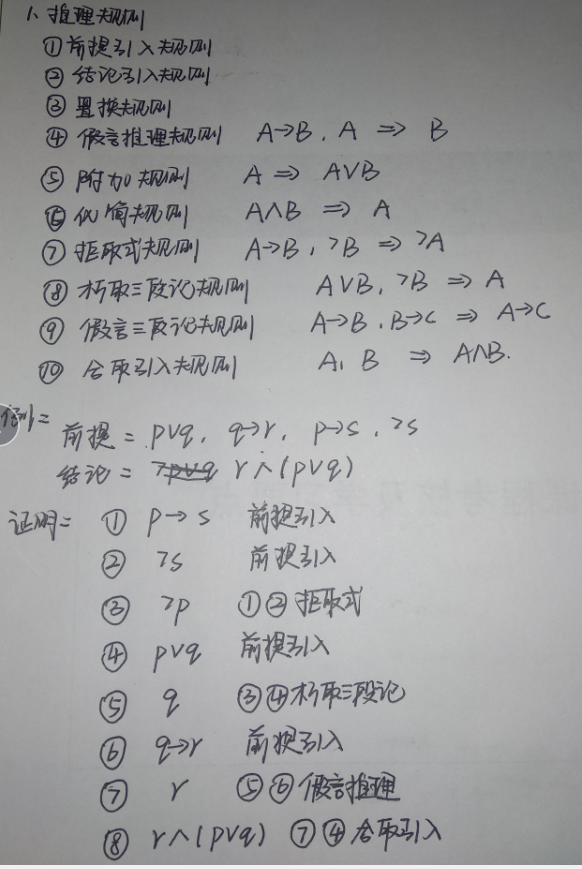 1、推理规则
① 前提引入规则
② 结论引入规则
③ 置换规则
④ 假言推理规则 A→B, A ⇒ B
⑤ 附加规则 A ⇒ A∨B
⑥ 化简规则 A∧B ⇒ A
⑦ 拒取式规则 A→B, ¬B ⇒ ¬A
⑧ 析取三段论规则 A∨B, ¬B ⇒ A
⑨ 假言三段论规则 A→B, B→C ⇒ A→C
⑩ 合取引入规则 A、B ⇒ A∧B.
例1:
前提: p∨q, q→r, p→s, ¬s
结论: r∧(p∨q)
证明: ① p→s 前提引入
② ¬s 前提引入
③ ¬p ①②拒取式
④ p∨q 前提引入
⑤ q ③④析取三段论
⑥ q→r 前提引入
⑦ r ⑤⑥假言推理
⑧ r∧(p∨q) ⑦④合取引入